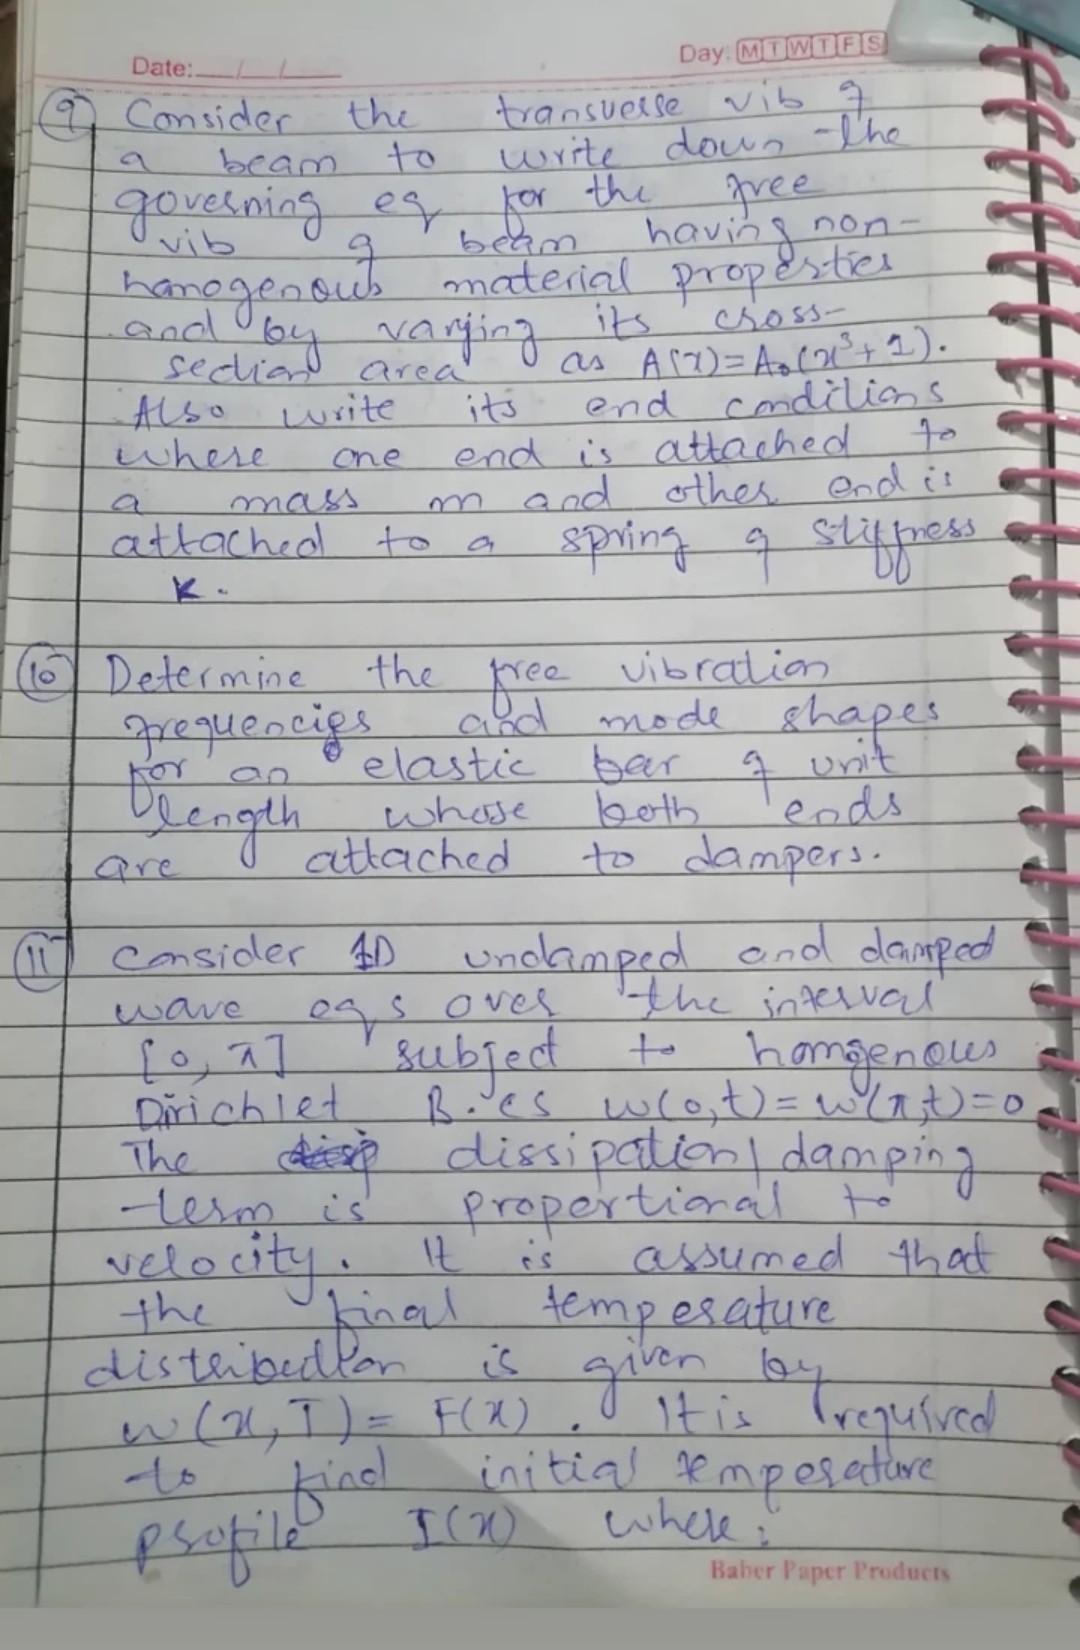 Date: __/__/__
Day: M T W T F S
9) Consider the transverse vib of
a beam to write down the
governing eq for the free
vib of beam having non-
homogenous material properties
and by varying its cross-
section area as A(x)=A₀(x³+1).
Also write its end conditions
where one end is attached to
a mass m and other end is
attached to a spring of stiffness
K.
10) Determine the free vibration
frequencies and mode shapes
for an elastic bar of unit
length whose both ends
are attached to dampers.
11) Consider 1D undamped and damped
wave eqs over the interval
[0, π] subject to homgenous
Dirichlet B.Cs w(0,t)=w(π,t)=0
The dissipation/damping
term is proportional to
velocity. It is assumed that
the final temperature
distribution is given by
w(x,T)= F(x). It is required
to find initial temperature
profile I(x) where:
Baber Paper Products